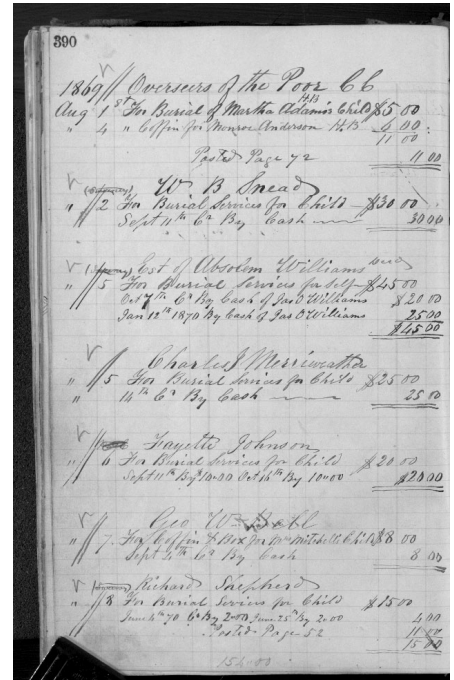 390
1869 Overseers of the Poor CC
Aug 1st For Burial of Martha Adams Child HB $5 00
" 4 " Coffin for Monroe Anderson HB 6 00
11 00
Posted Page 72 11 00
W B Snead
" 2 For Burial Services for Child $30 00
Sept 11th Cr By Cash 30 00
Est of Absolem Williams decd
" 5 For Burial Services for self $45 00
Oct 7th Cr By Cash of Jas O Williams $20 00
Jan 12th 1870 By Cash of Jas O Williams 25 00
$45 00
Charles J Merriweather
" 5 For Burial Services for Child $25 00
14th Cr By Cash 25 00
Fayette Johnson
" 6 For Burial Services for Child $20 00
Sept 11th By $10-00 Oct 14th By 10-00 $20 00
Geo W
" 7 For Coffin & Box for Mrs Mitchells Child $8 00
Sept 4th Cr By Cash 8 00
Richard Shepherd
" 8 For Burial Services for Child $15 00
June 4th 70 Cr By 2-00 June 25th By 2-00 4 00
Posted Page 52 11 00
15 00
154-00